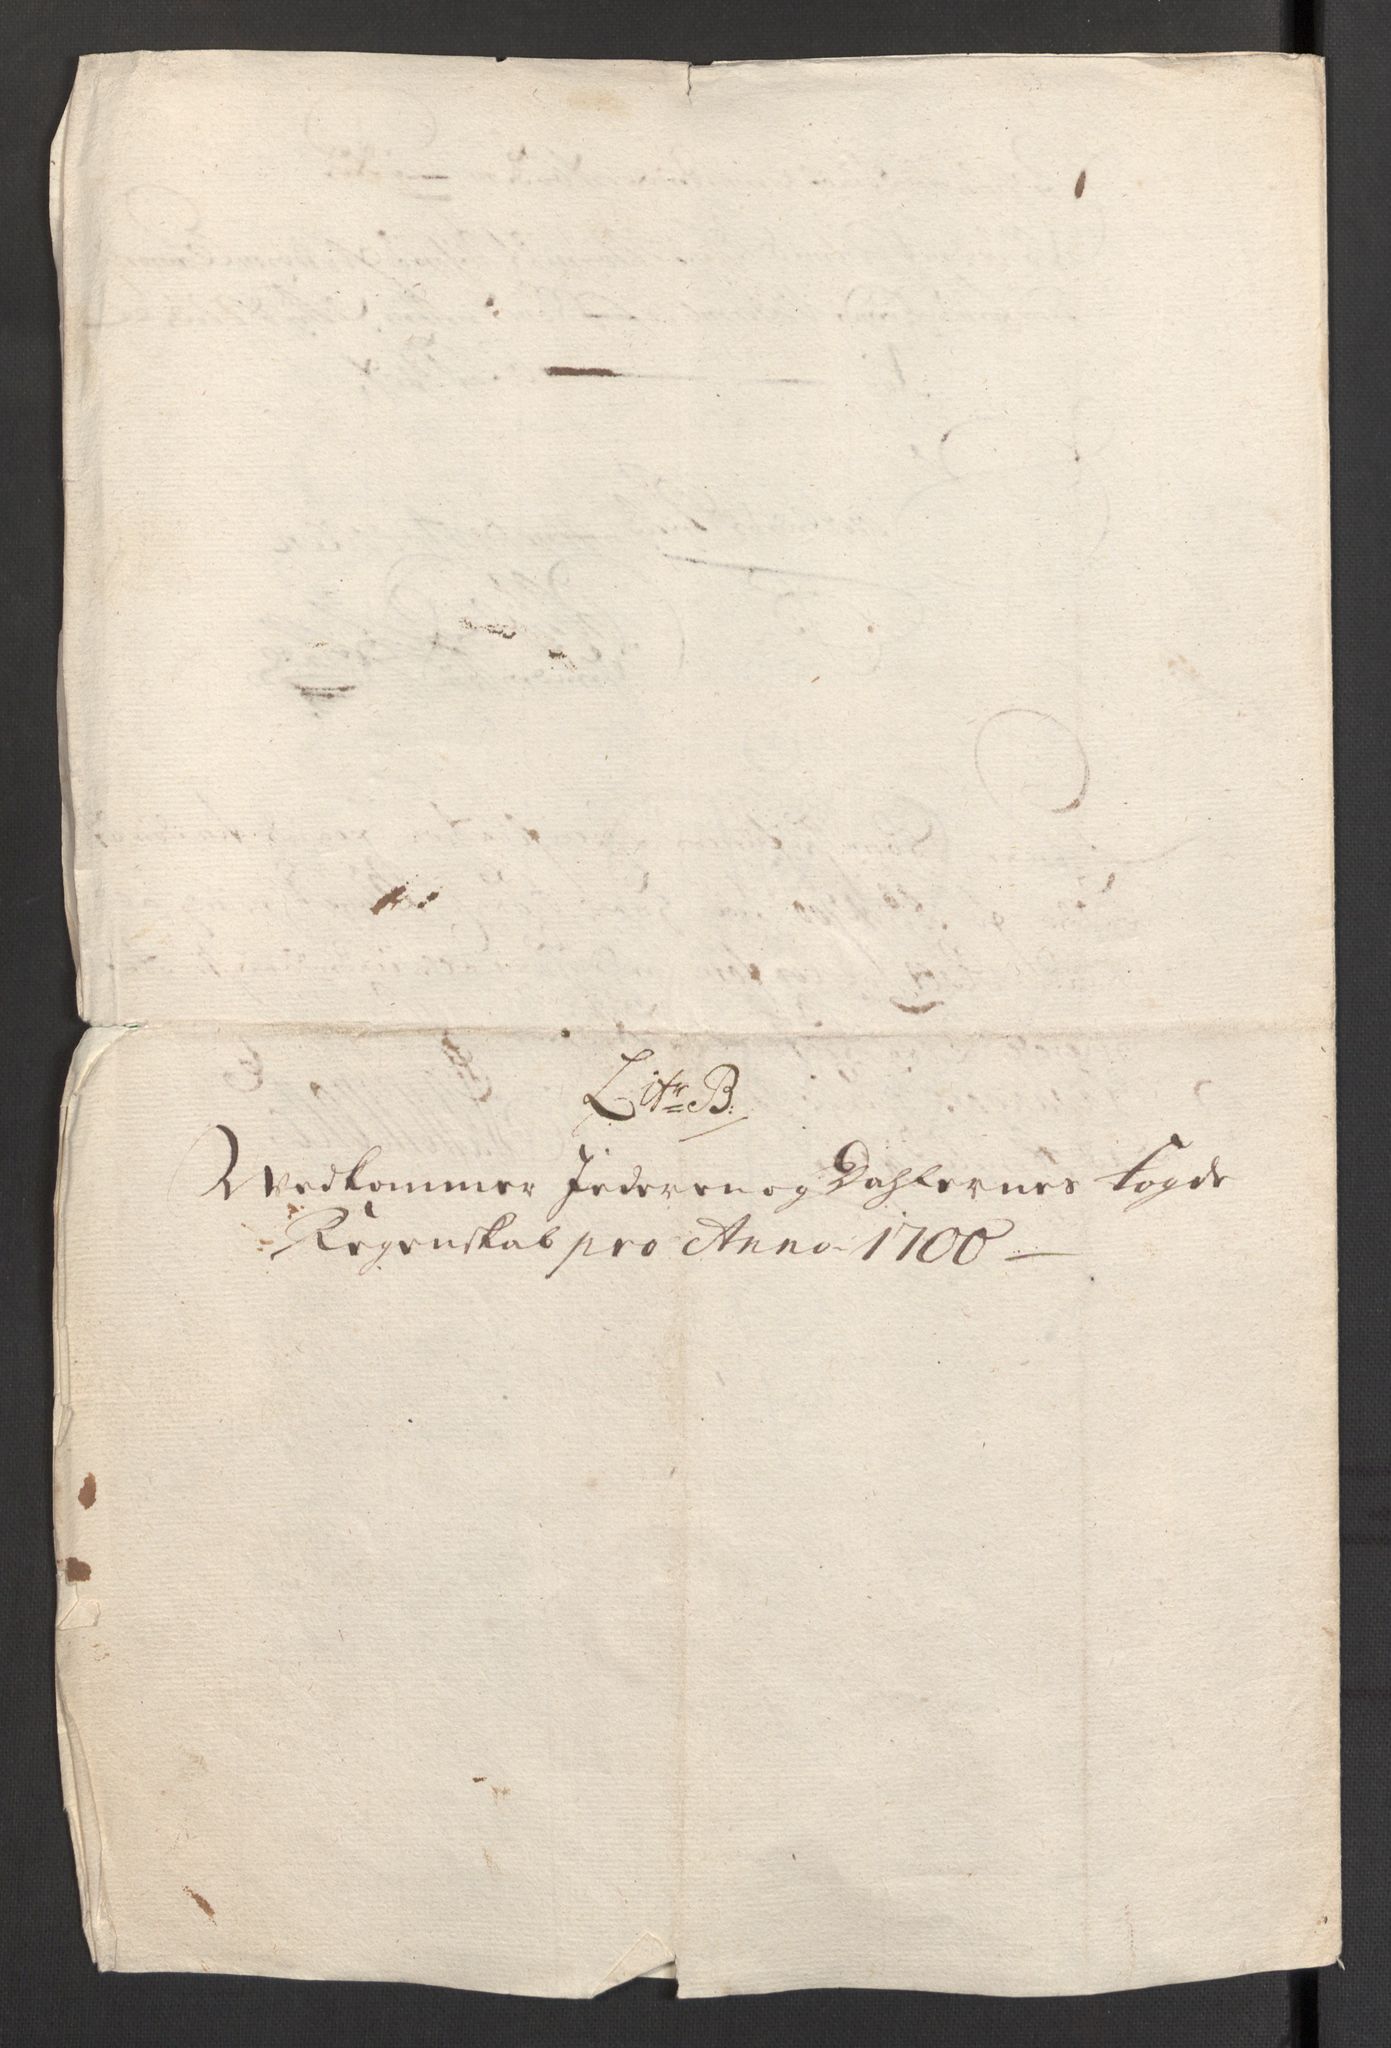 Litr B:
Wedkommer Jederen og Dahlernes fogde
Regenskab pro Anno 1700